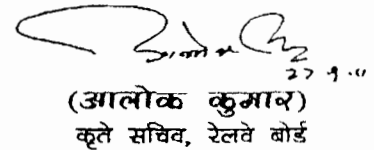 27.9.11
(आलोक कुमार)
कृते सचिव, रेलवे बोर्ड